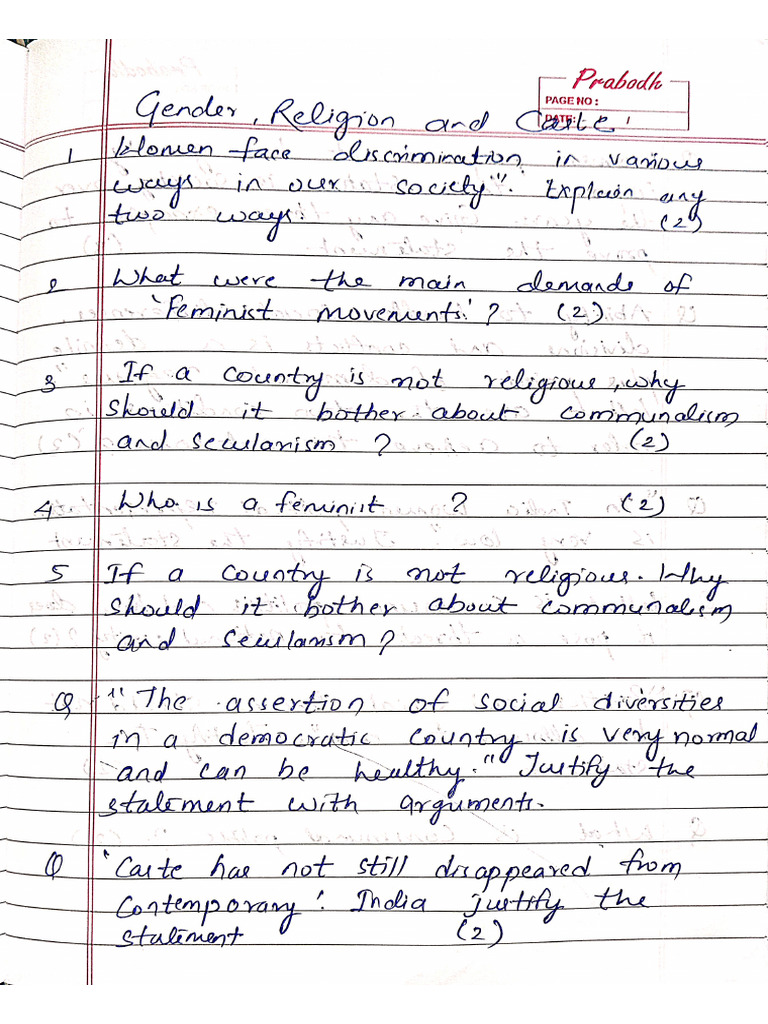 Prabodh
PAGE NO :
DATE:
Gender, Religion and Caste
1 Women face discrimination in various
ways in our society". Explain any
two ways. (2)
2 What were the main demands of
'Feminist movements.'? (2)
3 If a country is not religious, why
should it bother about communalism
and secularism ? (2)
4 Who is a feminist ? (2)
5 If a country is not religious. Why
should it bother about communalism
and secularism?
Q "The assertion of social diversities
in a democratic country is very normal
and can be healthy." Justify the
statement with arguments.
Q 'Caste has not still disappeared from
Contemporary'. India justify the
statement (2)